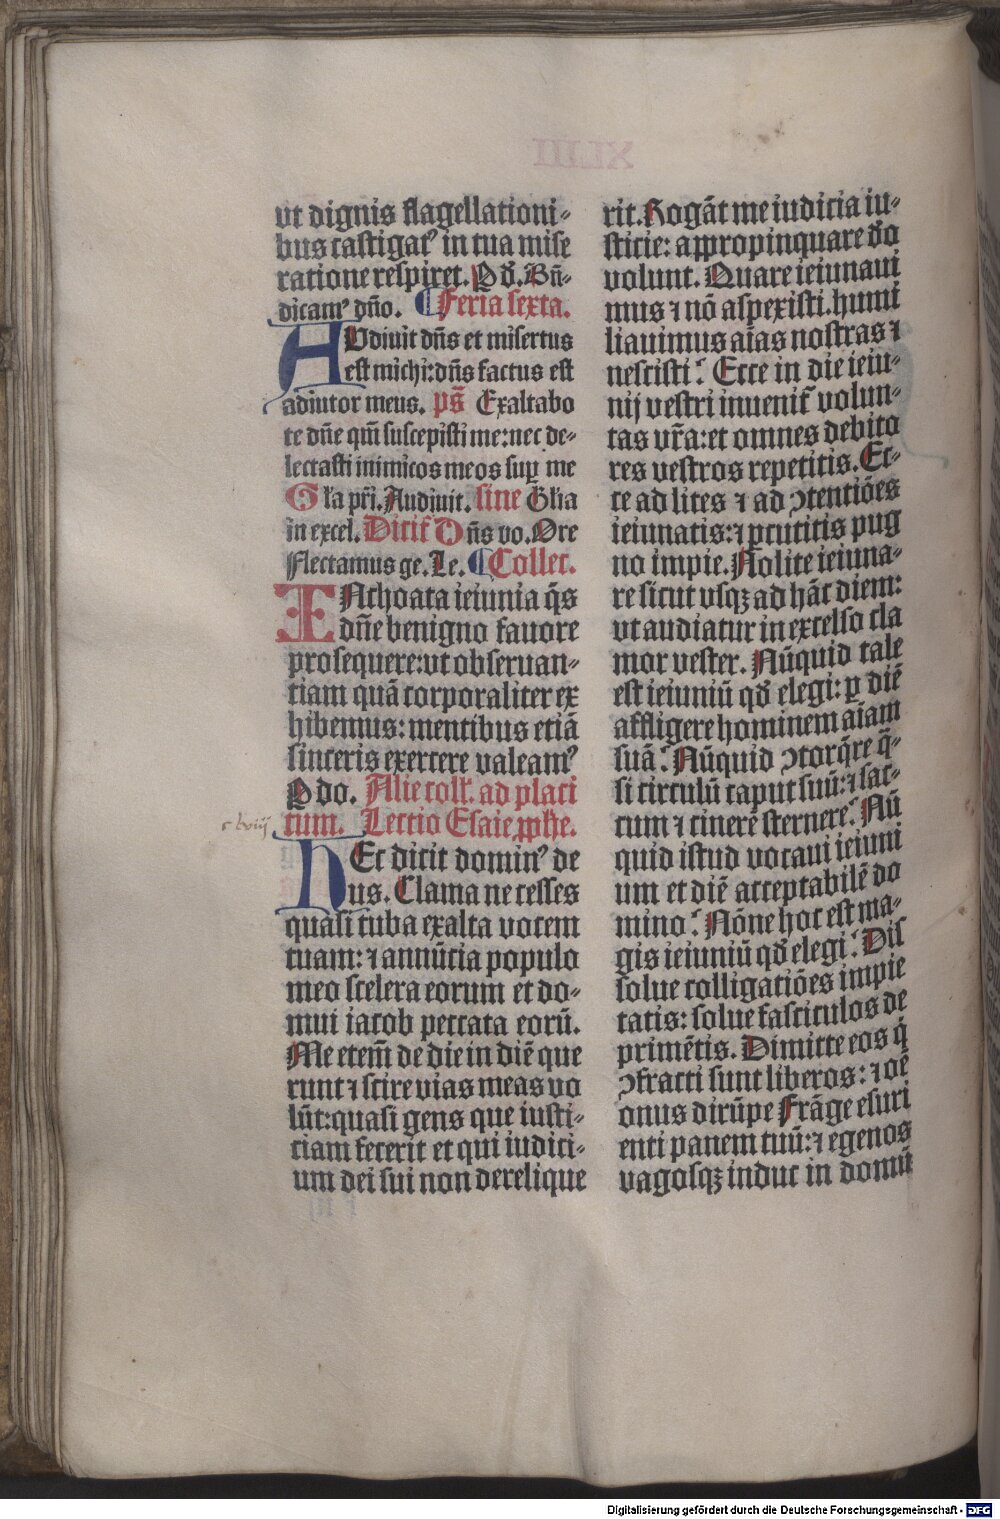 ut dignis flagellationi-
bus castigatꝰ in tua mise
ratione respiret. P d̄. Bn̄-
dicamꝰ dn̄o. Feria sexta.
AUdiuit dn̄s et misertus
est michi: dn̄s factus est
adiutor meus. ps̄ Exaltabo
te dn̄e qm̄ suscepisti me: nec de-
lectasti inimicos meos suꝑ me
Gl'a pr̄i. Audiuit. sine Gl'ia
in excel. Dicit᷑ Dn̄s vo. Ore
Flectamus ge. Le. Collec.
INchoata ieiunia q̄s
dn̄e benigno fauore
prosequere: ut obseruan-
tiam quā corporaliter ex
hibemus: mentibus etiā
sinceris exercere valeamꝰ
P do. Alie coll'. ad placi
tum. Lectio Esaie ꝓph̄e.
HEc dicit dominꝰ de
us. Clama ne cesses
quasi tuba exalta vocem
tuam: ⁊ annūcia populo
meo scelera eorum et do-
mui iacob peccata eorū.
Me etem̄ de die in diē que
runt ⁊ scire vias meas vo
lūt: quasi gens que iusti-
ciam fecerit et qui iudici-
um dei sui non derelique
rit. Rogāt me iudicia iu-
sticie: appropinquare d̄o
volunt. Quare ieiunaui
mus ⁊ nō aspexisti. humi
liauimus aīas nostras ⁊
nescisti? Ecce in die ieiu-
nij vestri inuenit᷑ volun-
tas vr̄a: et omnes debito
res vestros repetitis. Ec-
ce ad lites ⁊ ad ↄtentiōes
ieiunatis: ⁊ ꝑcutitis pug
no impie. Nolite ieiuna-
re sicut vsqꝫ ad hāc diem:
ut audiatur in excelso cla
mor vester. Nūquid tale
est ieiuniū qd̄ elegi: ꝑ diē
affligere hominem aīam
suā? Nūquid ↄtorq̄re q̄-
si circulū caput suū: ⁊ sac-
cum ⁊ cinerē sternere? Nū
quid istud vocaui ieiuni
um et diē acceptabilē do
mino? Nōne hoc est ma-
gis ieiuniū qd̄ elegi? Dis
solue colligatiōes impie
tatis: solue fasciculos de
primētis. Dimitte eos q̇
ↄfracti sunt liberos: ⁊ oē
onus dirūpe Frāge esuri
enti panem tuū: ⁊ egenos
vagosqꝫ induc in domū
Digitalisierung gefördert durch die Deutsche Forschungsgemeinschaft - DFG